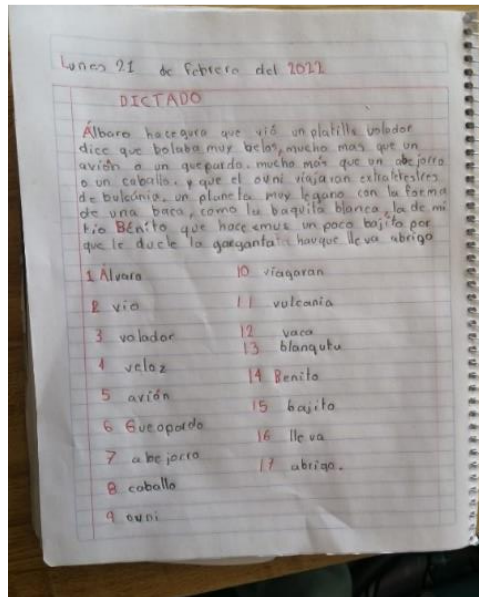 Lunes 21 de febrero del 2022
DICTADO
Álbaro hacegura que vió un platillo volador
dice que bolaba muy belos, mucho mas que un
avión o un quepardo. mucho más que un abejorro
o un caballo. y que el ovni viajaran extraterestres
de bulcania, un planeta muy legano con la forma
de una baca, como la baquita blanca, la de mi
tio BEnito que hace emus un poco bajito por
que le duele la garganta. haunque lleva abrigo
1 Álvaro
2 vio
3 volador
4 veloz
5 avión
6 Gueopardo
7 abejorro
8 caballo
9 ovni
10 viagaran
11 vulcania
12 vaca
13
14 Benito
15 bajito
16 lleva
17 abrigo.